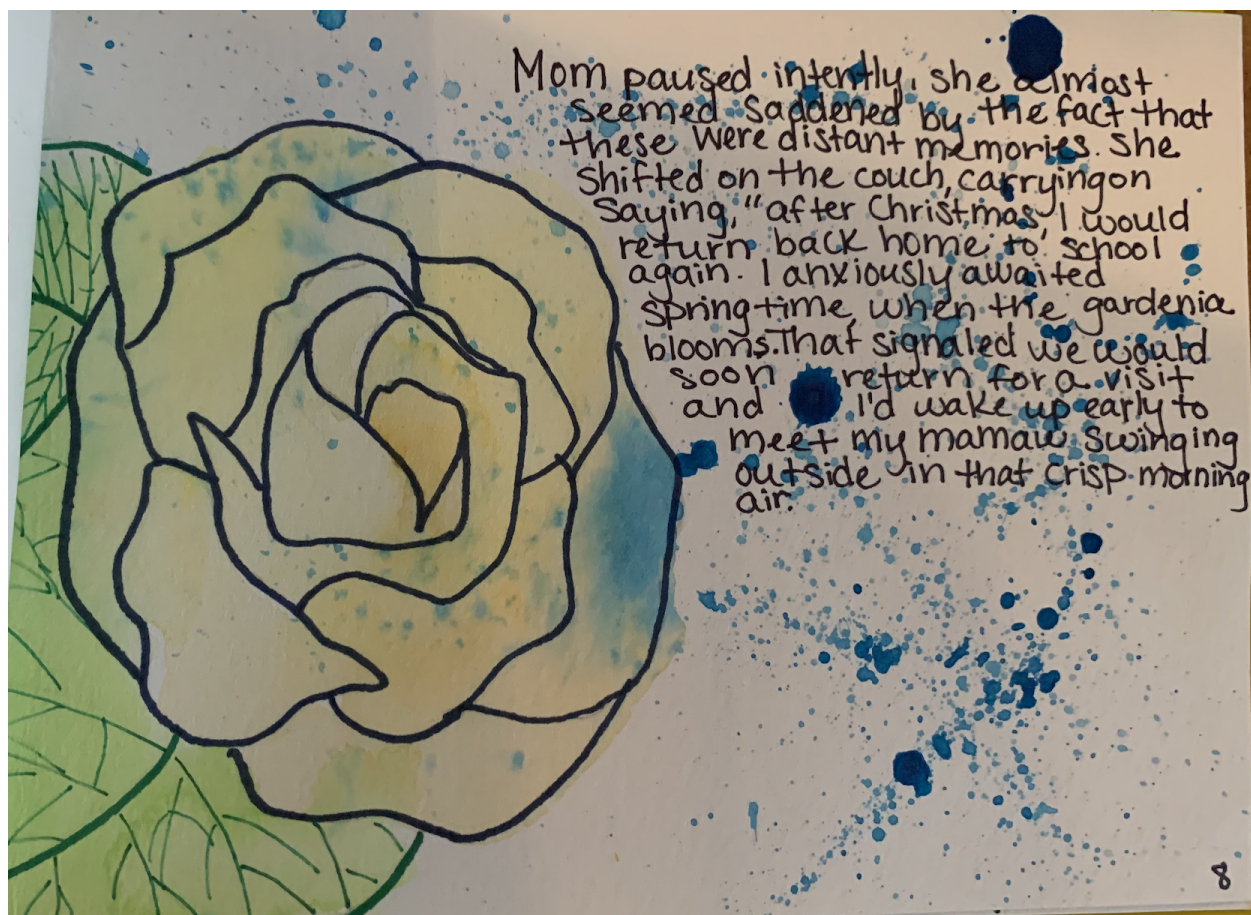 Mom paused intently, she almost
seemed saddened by the fact that
these were distant memories. She
shifted on the couch, carrying on
saying, "after Christmas, I would
return back home to school
again. I anxiously awaited
springtime when the gardenia
blooms. That signaled we would
soon return for a visit
and I'd wake up early to
meet my mamaw swinging
outside in that crisp morning
air.
8